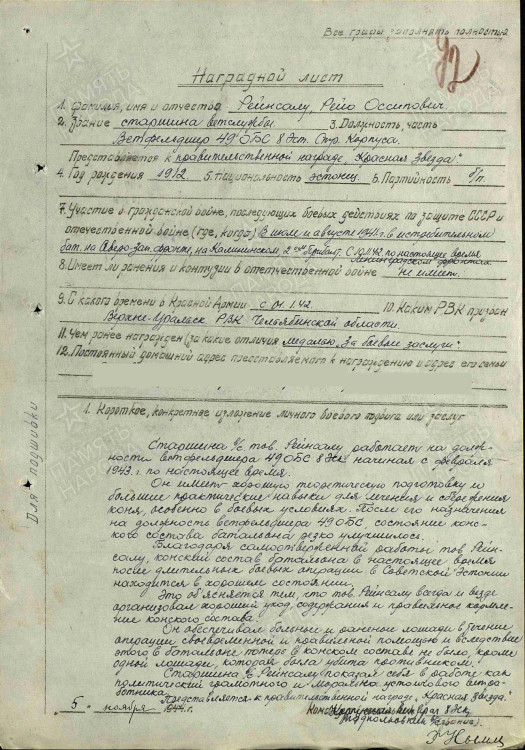 Все графы заполнять полностью
92
Наградной лист
1. Фамилия, имя и отчество Рейнсалу, Рейо Оссипович.
2. Звание старшина ветслужбы. 3. Должность, часть
Ветфельдшер 49 ОБС 8 Эст. Стр. Корпуса.
Представляется к правительственной награде „Красная Звезда“
4. Год рождения 1912 5. Национальность эстонец. 6. Партийность б/п.
7. Участие в гражданской войне, последующих боевых действиях по защите СССР и
отечественной войне (где, когда) В июле и августе 1941 г. в истребительном
бат. на Северо-зап. фронте, на Калининском, 2 ом Прибалт. С 10.11.42. по настоящее время
Ленинградском фронтах
8. Имеет ли ранения и контузии в отечественной войне Не имеет.
9. С какого времени в Красной Армии с 01.1.42. 10. Каким РВК призван
Верхне-Уральск РВК Челябинской области.
11. Чем ранее награжден (за какие отличия медалью „За боевые заслуги“.
12. Постоянный домашний адрес представляемого к награждению и адрес его семьи
1. Короткое, конкретное изложение личного боевого подвига или заслуг
Старшина в/с тов. Рейнсалу работает на долж-
ности ветфельдшера 49 ОБС 8 Эск начиная с февраля
1943 г. по настоящее время.
Он имеет хорошую теоретическую подготовку и
большие практические навыки для лечения и сбережения
коня, особенно в боевых условиях. После его назначения
на должность ветфельдшера 49 ОБС, состояние конс-
кого состава батальона резко улучшилось.
Благодаря самоотверженной работы тов. Рейн-
салу, конский состав батальона в настоящее время
после длительных боевых операции в Советской Эстонии
находится в хорошем состоянии.
Это об'ясняется тем, что тов. Рейнсалу всегда и везде
организовал хороший уход, содержания и правильное кормле-
ние конского состава.
Он обеспечивал больные и раненые лошади в течение
операции своевременной и правильной помощью и вследствие
этого в батальоне потерь в конском составе не было, кроме
одной лошади, которая была убита противником.
Старшина в/с Рейнсалу показал себя в работе как
политически грамотного и морально устойчивого ветра-
ботника.
Представляется к правительственной награде „Красная Звезда“.
5. ноября 1944 г.
Ветврач 8 Эск
Подполковник
Для подшивки